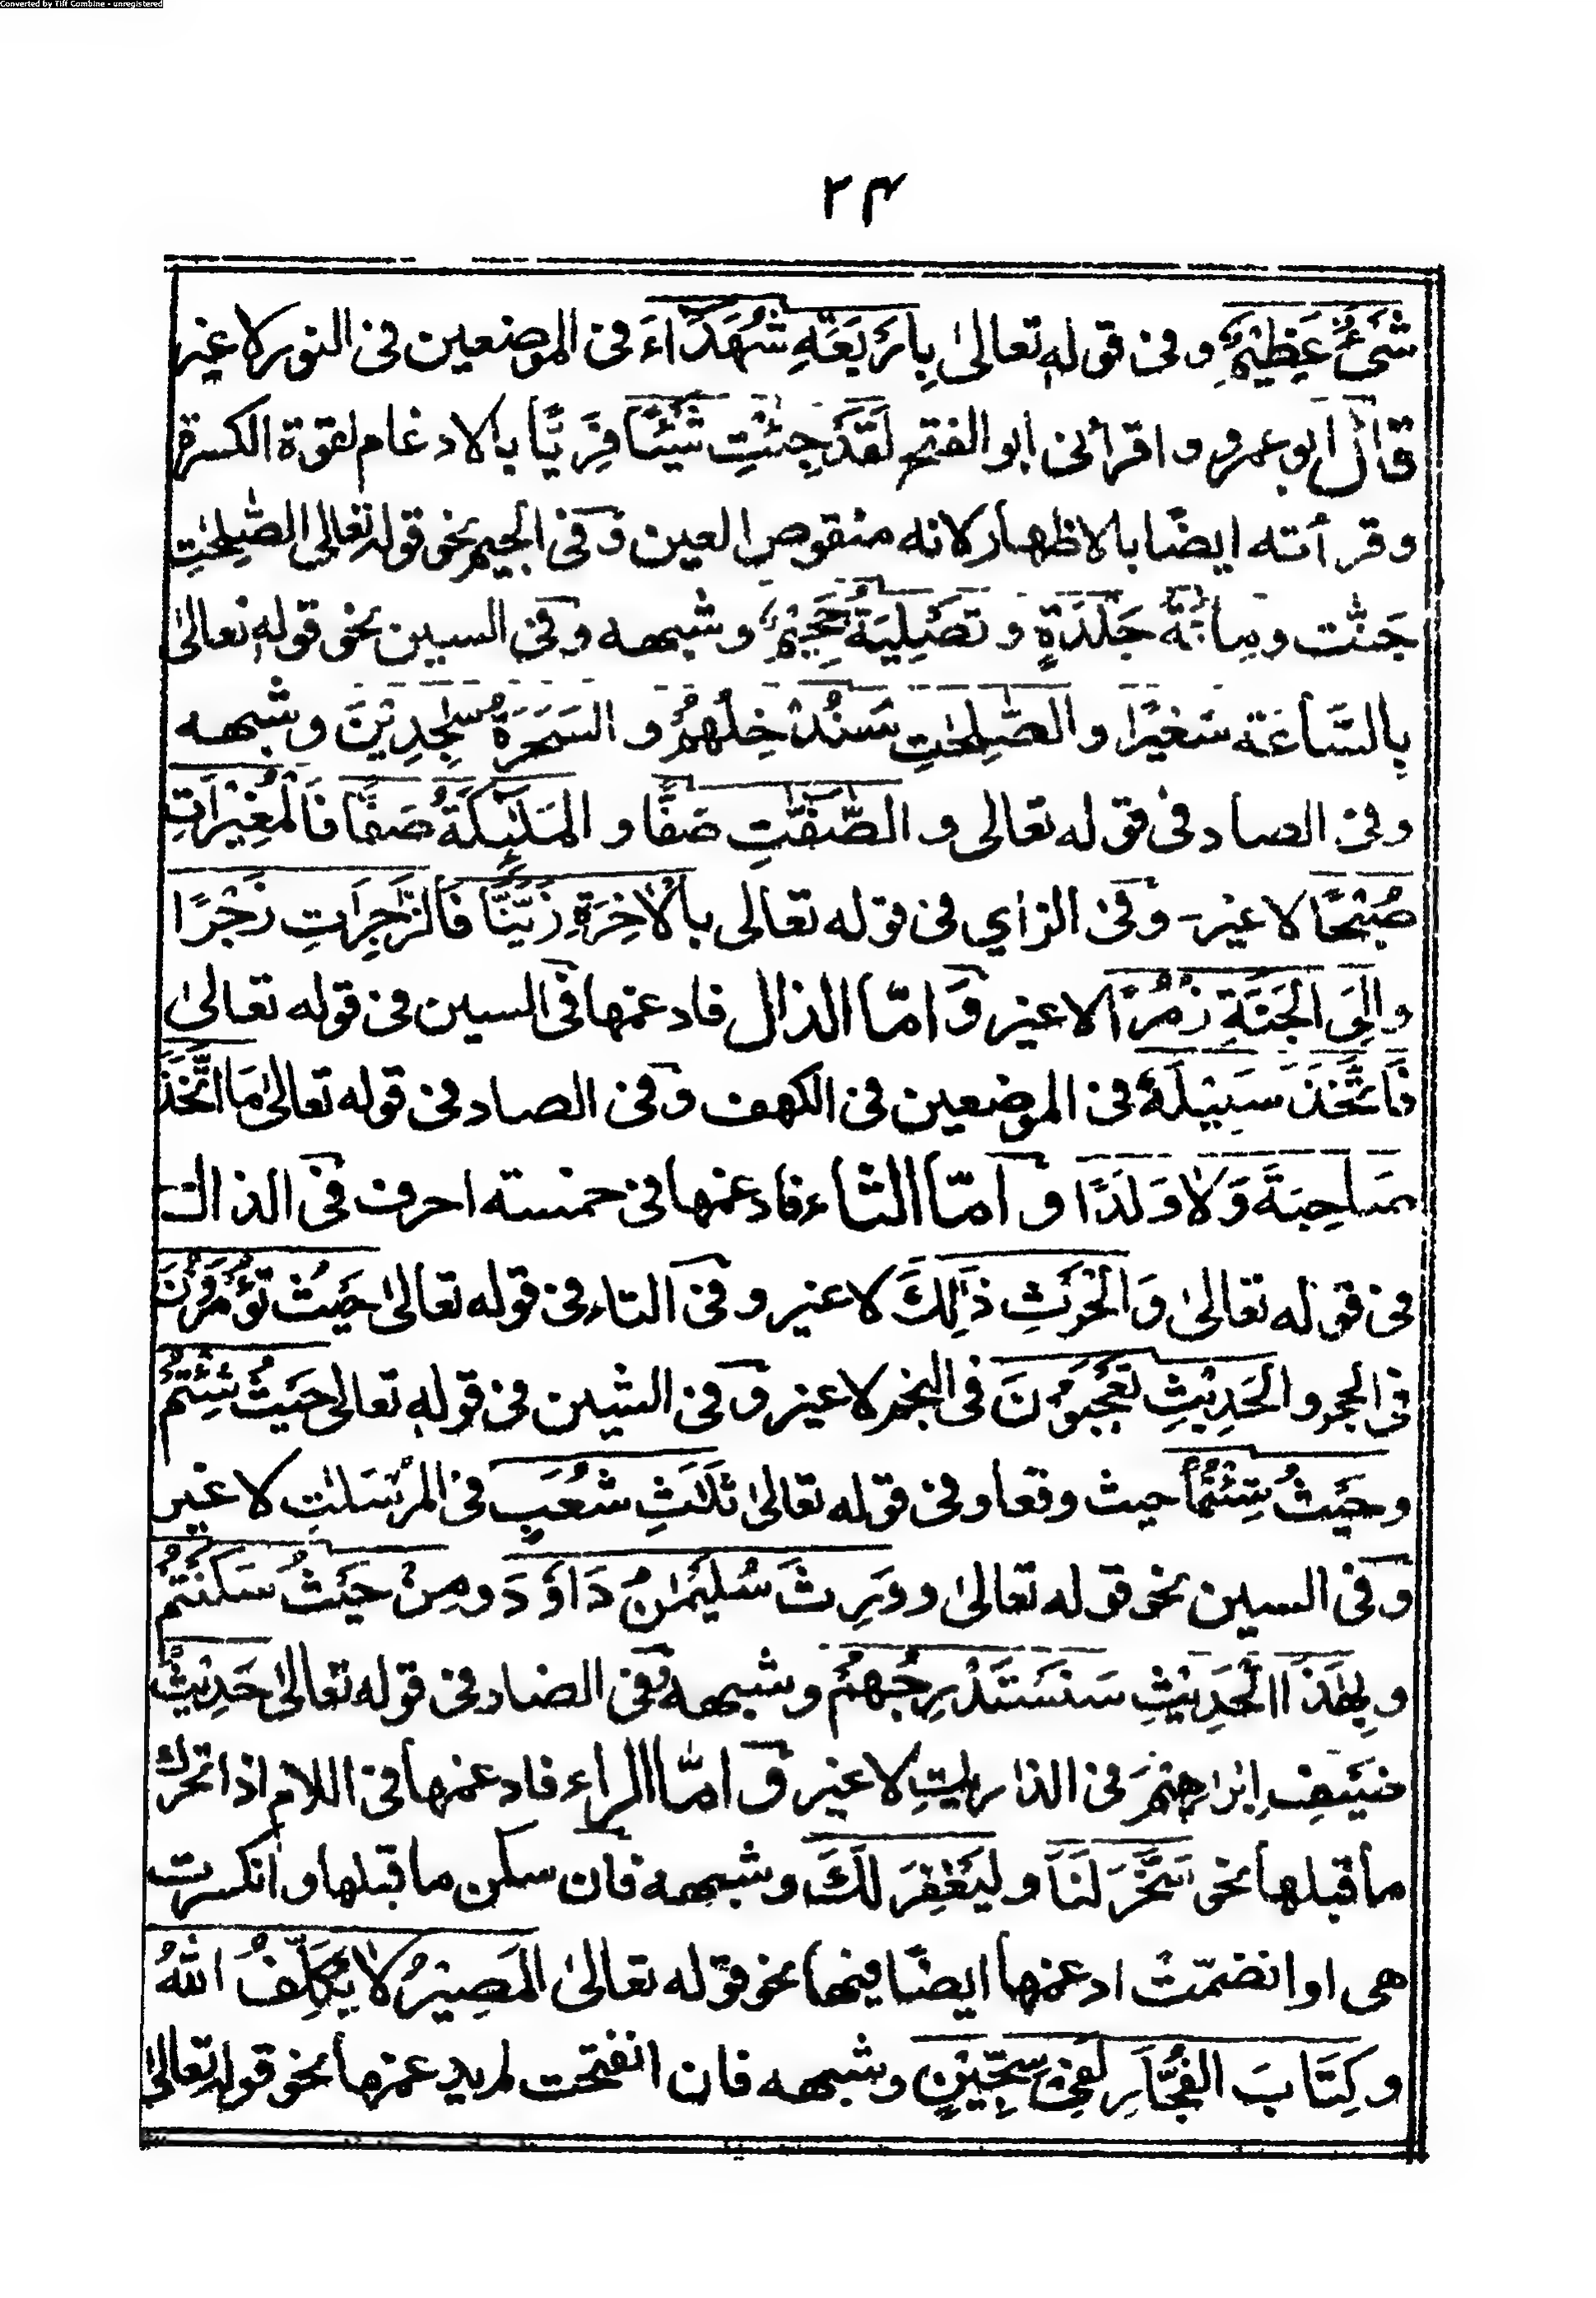 Converted by Tiff Combine - unregistered
٢٤
شَىْءٌ عَظِيْمٌ وفى قوله تعالىٰ بِاَرْبَعَةِ شُهَدَاءَ فى الموضعين فى النور لا غير
قال ابو عمرو و اقرأنى ابو الفتح لَقَدْ جِئْتِ شَيْئًا فَرِيًّا بالادغام لقوة الكسرة
وقرأته ايضًا بالاظهار لانه منقوص العين وفى الجيم نحو قوله تعالى الصّٰلِحٰتِ
جَنّٰت ومِائَةَ جَلْدَةٍ و تَصْلِيَةُ جَحِيْمٍ و شبهه وفى السين نحو قوله تعالىٰ
بِالسَّاعَةِ سَعِيْرًا و الصّٰلِحٰتِ سَنُدْخِلُهُمْ و السَّحَرَةُ سٰجِدِيْنَ و شبهه
وفى الصاد فى قوله تعالى و الصّٰفّٰتِ صَفًّا و المَلٰٓئِكَةُ صَفًّا فَالْمُغِيْرَاتِ
صُبْحًا لا غير- وفى الزاي فى قوله تعالى بالْاٰخِرَةِ زَيَّنَّا فَالزّٰجِرَاتِ زَجْرًا
و اِلَى الْجَنَّةِ زُمَرًا لا غير وَ امّا الذال فادغمها فى السين فى قوله تعالىٰ
فَاتَّخَذَ سَبِيْلَهٗ فى الموضعين فى الكهف وفى الصاد فى قوله تعالىٰ مَا اتَّخَذَ
صَاحِبَةً وَّلَا وَلَدًا و امّا الثاء فادغمها فى خمسته احرف فى الذال
فى قوله تعالىٰ وَالْحَرْثِ ذٰلِكَ لا غير و فى التاء فى قوله تعالىٰ حَيْثُ تُؤْمَرُوْنَ
فى الحجر و الْحَدِيْثِ تَعْجَبُوْنَ فى النجم لا غير و فى الشين فى قوله تعالى حَيْثُ شِئْتُمْ
و حَيْثُ شِئْتُمَا حيث وقعا وفى قوله تعالىٰ ثَلٰثِ شُعَبٍ فى المُرْسَلٰتِ لا غير
وفى السين نحو قوله تعالىٰ و وَرِثَ سُلَيْمٰنُ دَاوٗدَ و مِنْ حَيْثُ سَكَنْتُمْ
و بِهٰذَا الْحَدِيْثِ سَنَسْتَدْرِجُهُمْ و شبهه وفى الضاد فى قوله تعالىٰ حَدِيْثُ
ضَيْفِ اِبْرَاهِيْمَ فى الذاريٰتِ لا غير وَ امّا الراء فادغمها فى اللام اذا تحرك
ما قبلها نحو سَخَّرَ لَنَا و لِيَغْفِرَ لَكَ و شبهه فان سكن ما قبلها و انكسرت
هى او انضمّتْ ادغمها ايضًا فيها نحو قوله تعالىٰ المَصِيْرُ لَا يُكَلِّفُ اللّٰهُ
و كِتَابَ الْفُجَّارِ لَفِىْ سِجِّيْنٍ و شبهه فان انفتحت لم يدغمها نحو قوله تعالىٰ